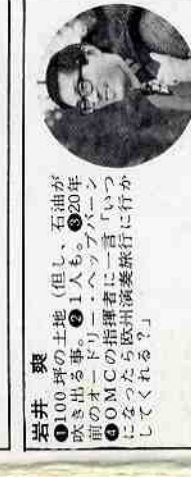 岩井　爽
❶100坪の土地（但し、石油が
吹き出る事。❷1人も。❸20年
前のオードリー・ヘップバーン
❹OMCの指揮者に一言「いつ
になったら欧州演奏旅行に行か
してくれる？」